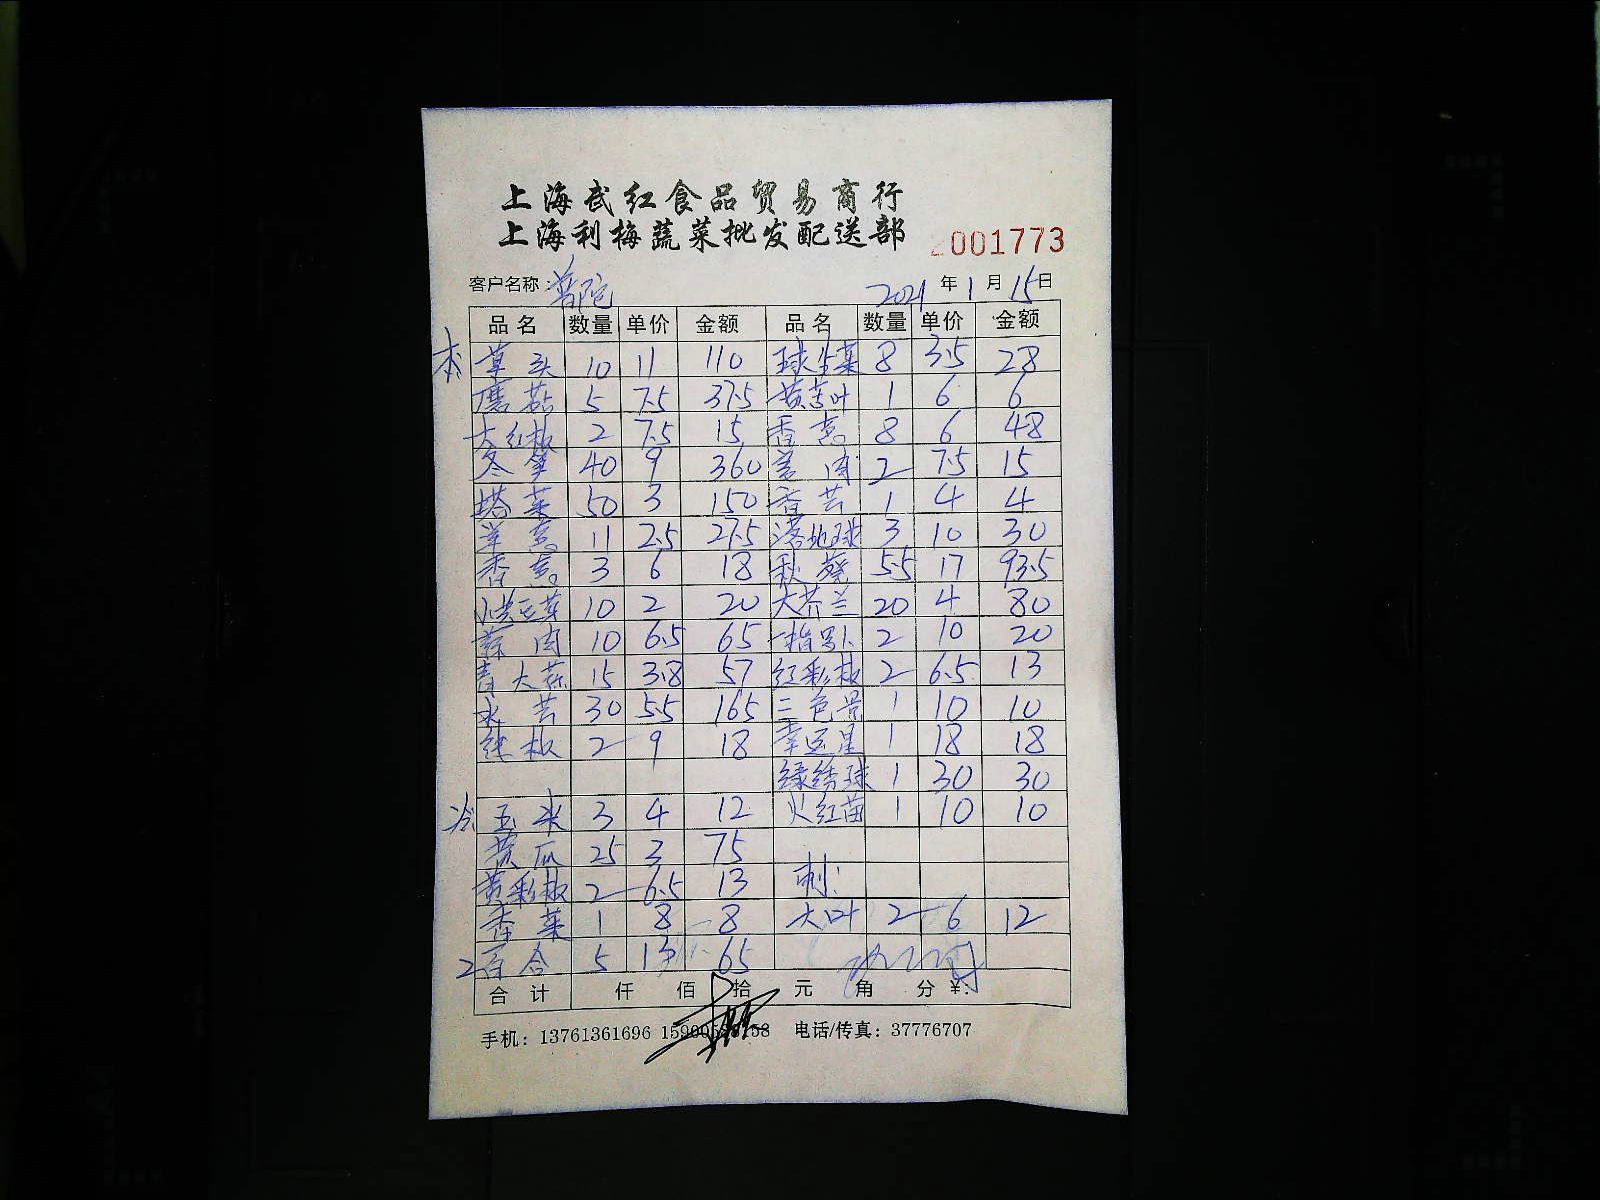 上海武红食品贸易商行
上海利梅蔬菜批发配送部 2001773
客户名称：普陀 2021 年 1 月 15 日
品名 数量 单价 金额 品名 数量 单价 金额
本 草头 10 11 110 球生菜 8 3.5 28
磨菇 5 7.5 37.5 黄杏叶 1 6 6
大红椒 2 7.5 15 香葱 8 6 48
冬笋 40 9 360 姜肉 2 7.5 15
塔菜 50 3 150 香芸 1 4 4
洋葱 11 2.5 27.5 落地球 3 10 30
香葱 3 6 18 秋葵 5.5 17 93.5
小黄豆芽 10 2 20 大芥兰 20 4 80
蒜肉 10 6.5 65 一指 2 10 20
青大蒜 15 3.8 57 红彩椒 2 6.5 13
水芹 30 5.5 165 三色 1 10 10
椒 2 9 18 幸运星 1 18 18
绿绣球 1 30 30
冷 玉米 3 4 12 火红苗 1 10 10
黄瓜 25 3 75
黄彩椒 2 6.5 13 刺：
香菜 1 8 8 大叶 2 6 12
百合 5 13 65
合计 仟 佰 拾 元 角 分 ¥：
手机：13761361696 电话/传真：37776707